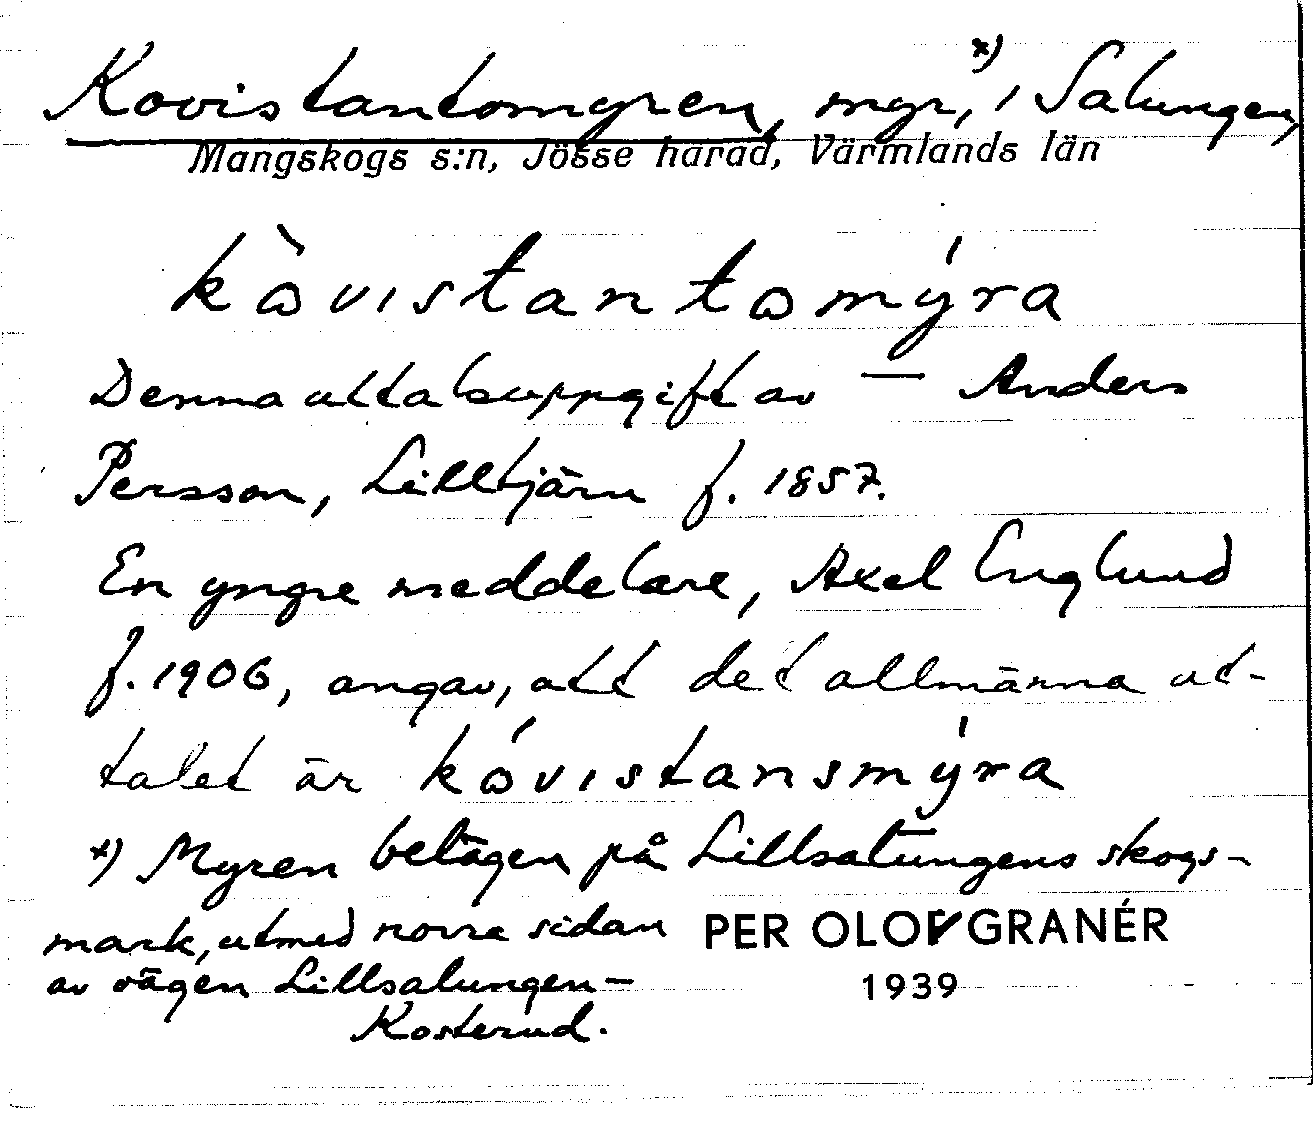 Kovistantomyren, myr, x) i Salungen,
Mangskogs s:n, Jösse härad, Värmlands län
kòvistantomýra
Denna uttalsuppgift av — Anders
Persson, Lilltjärn f. 1857.
En yngre meddelare, Axel Englund
f. 1906, angav, att det allmänna ut-
talet är kóvistansmýra
x) Myren belägen på Lillsalungens skogs-
mark, utmed norra sidan
av vägen Lillsalungen –
Kosterud.
PER OLOF GRANÉR
1939